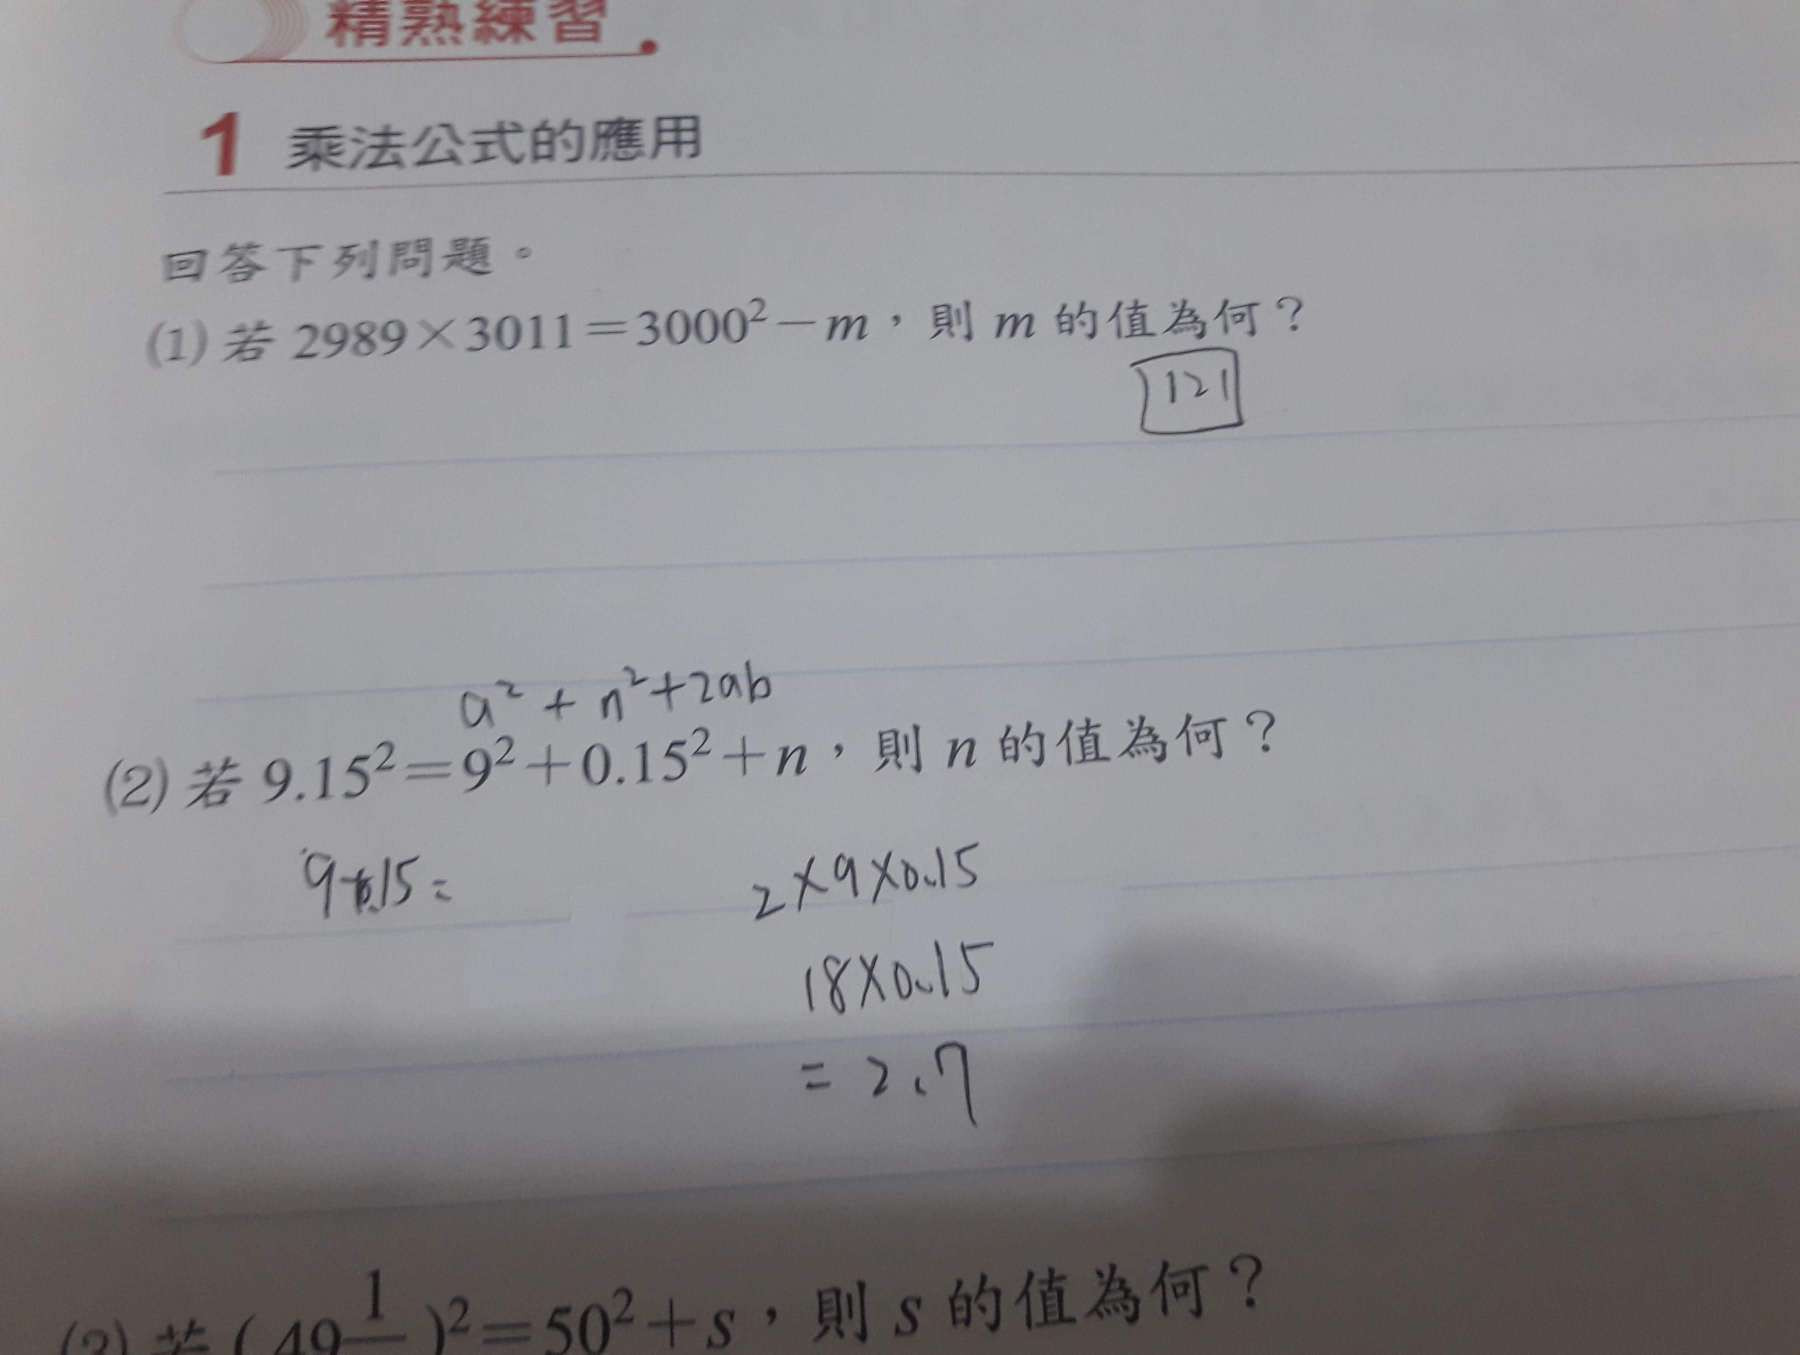 精熟練習
1 乘法公式的應用
回答下列問題。
(1) 若 2989×3011=3000²-m,則 m 的值為何?
121
a² + n²+2ab
(2) 若 9.15²=9²+0.15²+n,則 n 的值為何?
9+0.15= 2×9×0.15
18×0.15
= 2.7
(3) 若 (49 1 )²=50²+s,則 s 的值為何?